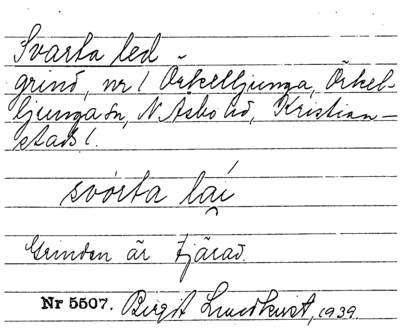 Svarta led -
grind, nr 1 Örkelljunga, Örkel-
ljunga sn, N. Åsbo hd, Kristian-
stads l.
svórta laí̯
Grinden är tjärad.
Nr 5507. Birgit Lundkvist, 1939.